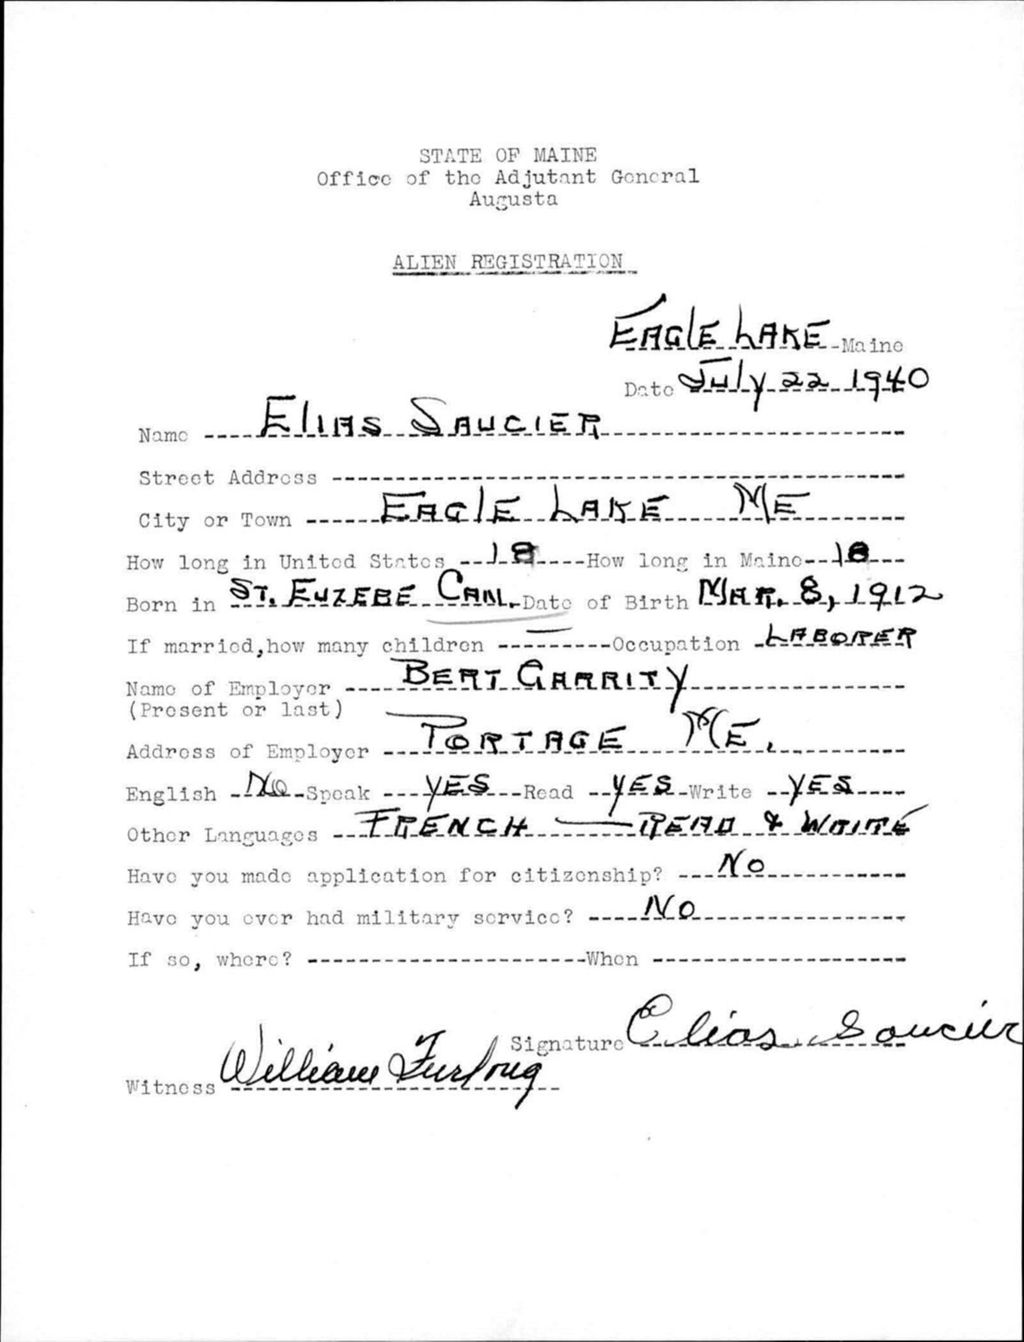 STATE OF MAINE
Office of the Adjutant General
Augusta
ALIEN REGISTRATION
EAGLE LAKE Maine
Date July 22 1940
Name ELIAS SAUCIER
Street Address
City or Town EAGLE LAKE ME
How long in United States 18 How long in Maine 18
Born in ST. EUZEBE CAN. Date of Birth MAR. 8, 1912
If married, how many children — Occupation LABORER
Name of Employer BERT GARRITY
(Present or last)
Address of Employer PORTAGE ME.
English No Speak YES Read YES Write YES
Other Languages FRENCH — READ & WRITE
Have you made application for citizenship? No
Have you ever had military service? No
If so, where? When
Signature Elias Saucier
Witness William Furlong